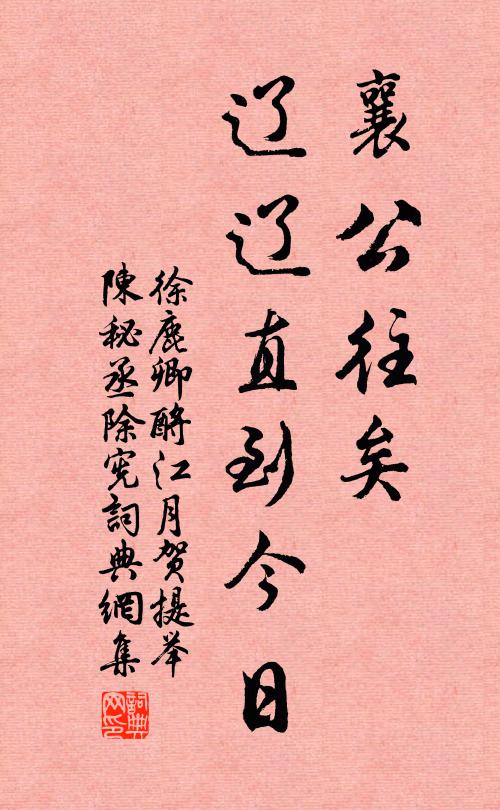 襄公往矣
辽辽直到今日
徐鹿卿酹江月贺提举
陳秘丞除宪詞典網集
詞典网印